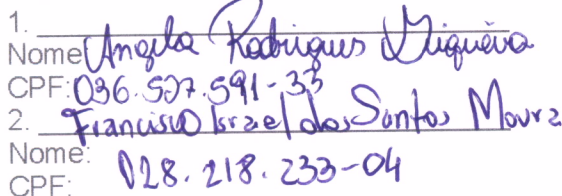 1.
Nome: Angela Rodrigues Siqueira
CPF: 036.507.591-33
2. Francisco Israel dos Santos Moura
Nome:
CPF: 028.218.233-04